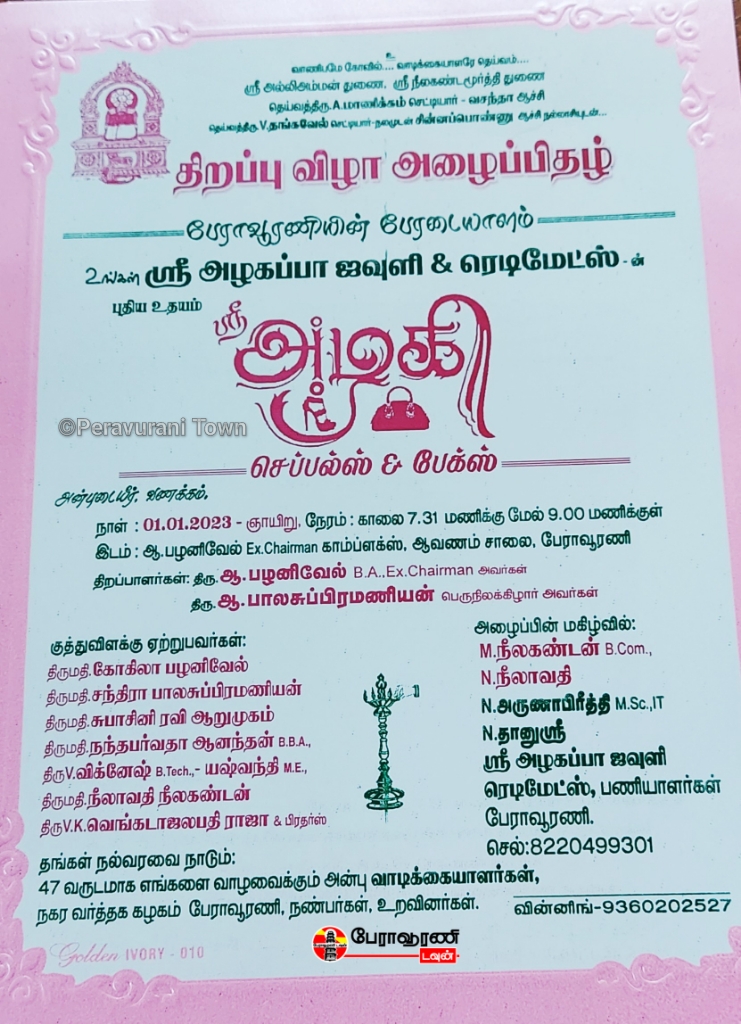 உ
வாணிபமே கோவில்.... வாடிக்கையாளரே தெய்வம்....
ஸ்ரீ அல்லிஅம்மன் துணை, ஸ்ரீ நீலகண்டமூர்த்தி துணை
தெய்வத்திரு.A.மாணிக்கம் செட்டியார் - வசந்தா ஆச்சி
தெய்வத்திரு.V.தங்கவேல் செட்டியார்-நலமுடன் சின்னப்பொண்ணு ஆச்சி நல்லாசியுடன்...
திறப்பு விழா அழைப்பிதழ்
பேராவூரணியின் பேரடையாளம்
உங்கள் ஸ்ரீ அழகப்பா ஜவுளி & ரெடிமேட்ஸ் - ன்
புதிய உதயம்
ஸ்ரீ
அழகி
©Peravurani Town
செப்பல்ஸ் & பேக்ஸ்
அன்புடையீர், வணக்கம்,
நாள் : 01.01.2023 - ஞாயிறு, நேரம் : காலை 7.31 மணிக்கு மேல் 9.00 மணிக்குள்
இடம் : ஆ.பழனிவேல் Ex.Chairman காம்ப்ளக்ஸ், ஆவணம் சாலை, பேராவூரணி
திறப்பாளர்கள்: திரு. ஆ. பழனிவேல் B.A.,Ex.Chairman அவர்கள்
திரு. ஆ. பாலசுப்பிரமணியன் பெருநிலக்கிழார் அவர்கள்
குத்துவிளக்கு ஏற்றுபவர்கள்:
திருமதி.கோகிலா பழனிவேல்
திருமதி.சந்திரா பாலசுப்பிரமணியன்
திருமதி.சுபாசினி ரவி ஆறுமுகம்
திருமதி.நந்தபர்வதா ஆனந்தன் B.B.A.,
திருV.விக்னேஷ் B.Tech.,- யஷ்வந்தி M.E.,
திருமதி.நீலாவதி நீலகண்டன்
திருV.K.வெங்கடாஜலபதி ராஜா & பிரதர்ஸ்
அழைப்பின் மகிழ்வில்:
M.நீலகண்டன் B.Com.,
N.நீலாவதி
N.அருணாபிரீத்தி M.Sc.,IT
N.தானுஸ்ரீ
ஸ்ரீ அழகப்பா ஜவுளி
ரெடிமேட்ஸ், பணியாளர்கள்
பேராவூரணி.
செல்:8220499301
தங்கள் நல்வரவை நாடும்:
47 வருடமாக எங்களை வாழவைக்கும் அன்பு வாடிக்கையாளர்கள்,
நகர வர்த்தக கழகம் பேராவூரணி, நண்பர்கள், உறவினர்கள்.
வின்னிங்-9360202527
Golden IVORY - 010
பேராவூரணி
டவுன்